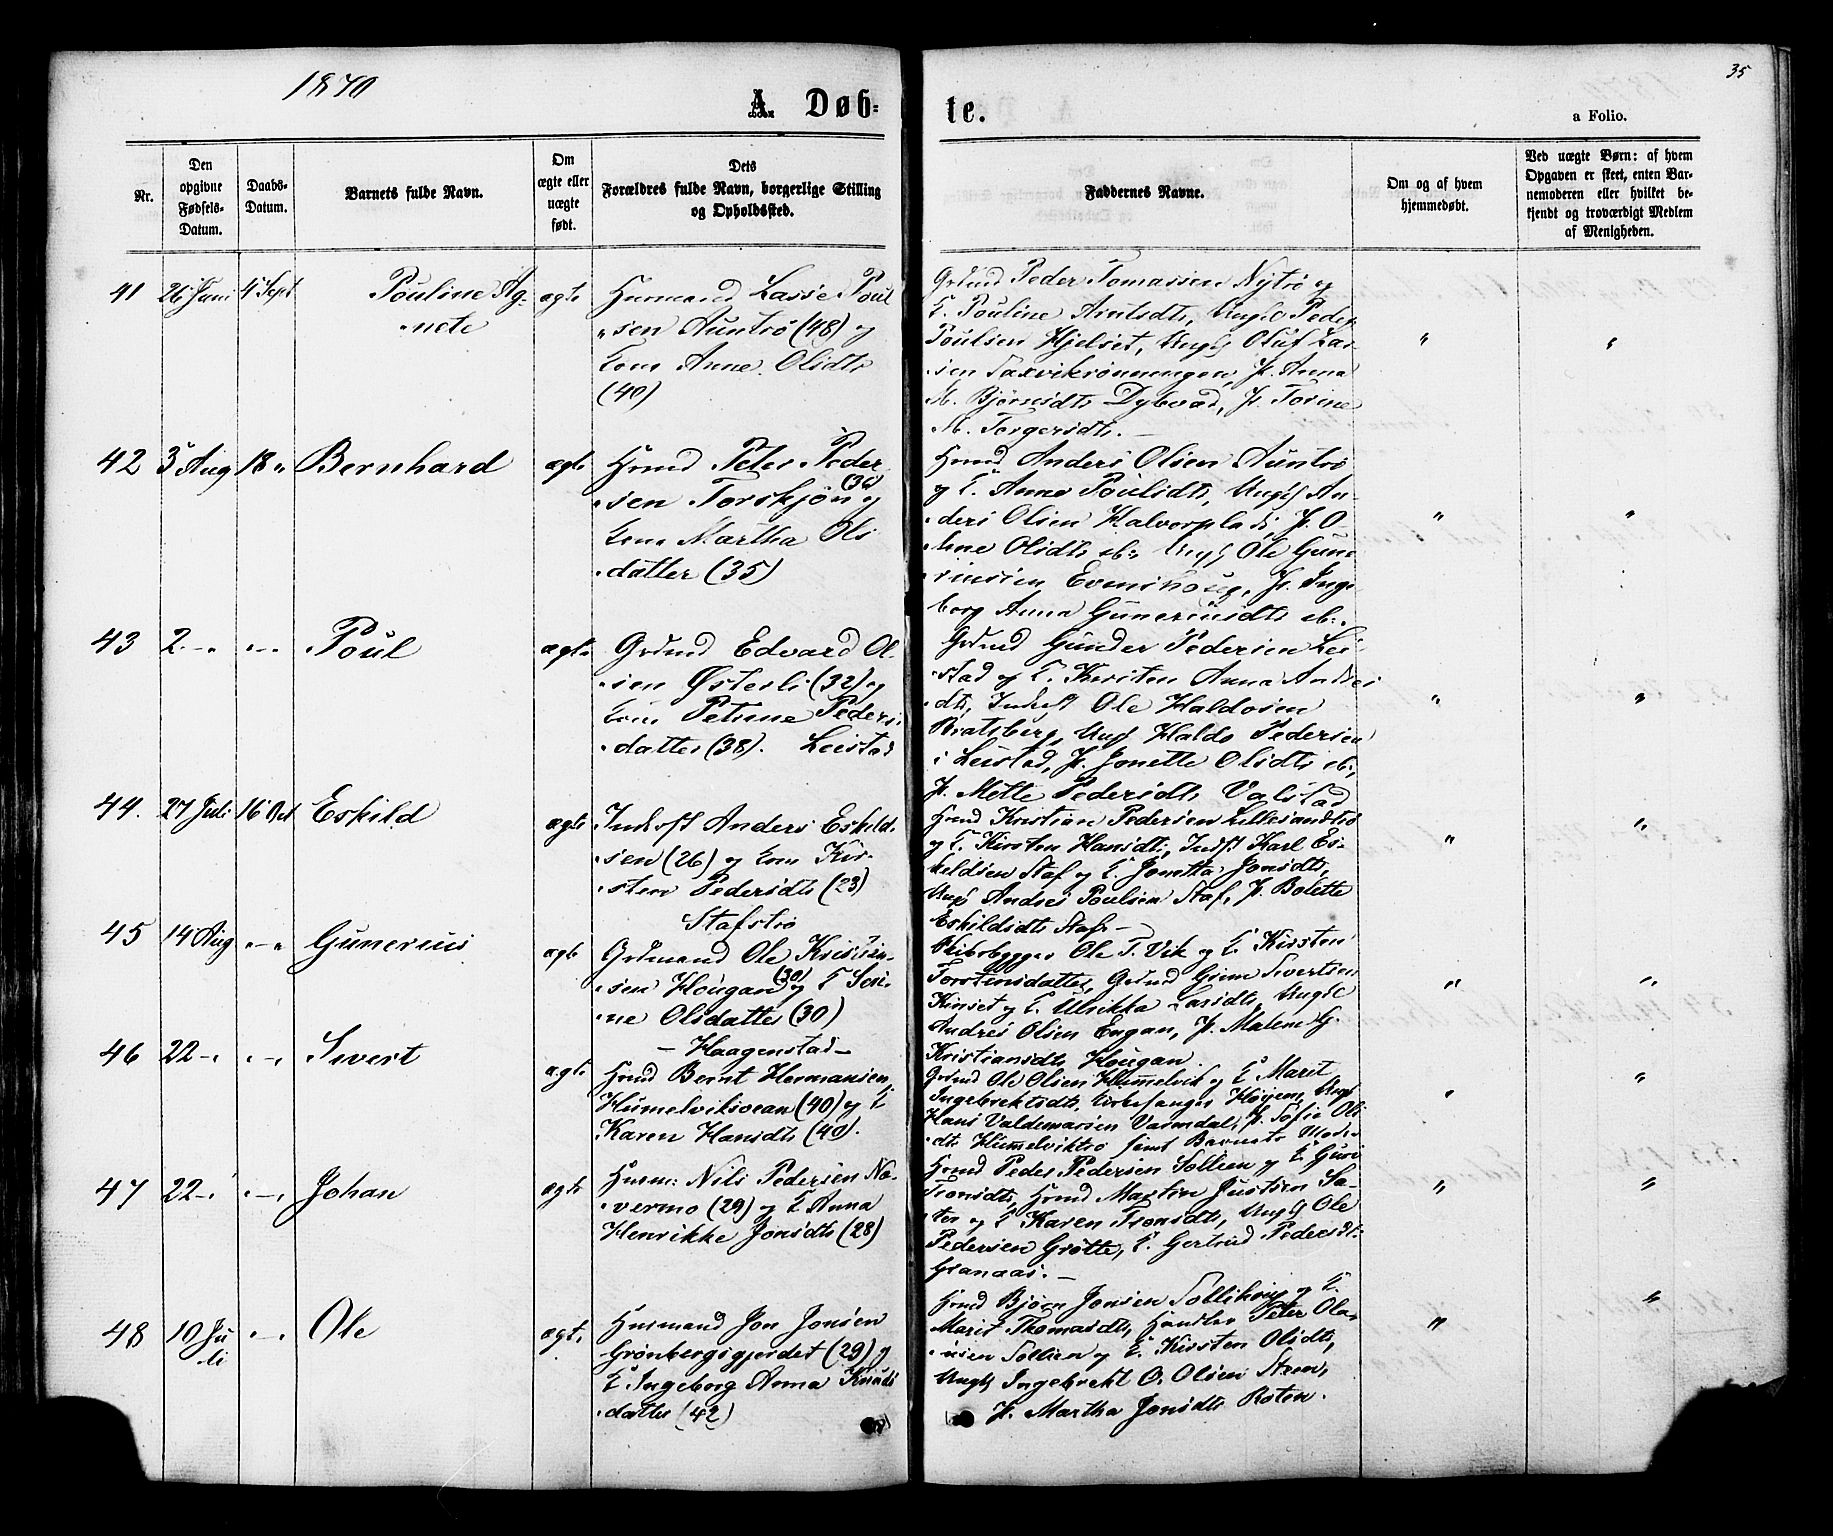 1870
35
A. Døb-
te.
a Folio.
Nr.
Den
opgivne
Fødsels-
Datum.
Daabs-
Datum.
Barnets fulde Navn.
Om
ægte eller
uægte
født.
Dets
Forældres fulde Navn, borgerlige Stilling
og Opholdssted.
Faddernes Navne.
Om og af hvem
hjemmedøbt.
Ved uægte Børn: af hvem
Opgaven er skeet, enten Bar-
nemoderen eller hvilket be-
kjendt og troværdigt Medlem
af Menigheden.
41 26 Juni 4 Sept Pouline Ag-
nete
ægte
Husmand Lasse Poul
sen Auntrö (48) og
Kone Anne Olsdtr
(40)
Grdmd Peder Tomassen Nytrö og
E. Pouline Arntsdtr, Ungk Peder
Poulsen Hjelset, Ungk Oluf Lar-
sen Saxvikrönningen, P. Anna
M. Björnsdtr Dybvad, P. Torine
M. Torgersdtr. —
42 3 Aug 18 " Bernhard
ægte
Hsmd Peter Peder
sen Torskjön (36) og
Kone Martha Ols
datter (35)
Hsmd Anders Olsen Auntrö
og E. Anne Poulsdtr, Ungk An-
ders Olsen Halvorplads, P. O-
line Olsdtr sb:, Ungk Ole Gune
riussen Evenshoug, P. Inge
borg Anna Guneriusdtr sb:.
43 2 -„- -„- Poul
ægte
Grdmd Edvard Ol-
sen Østerli (32) og
Kone Petrine Peders
datter (38). Leistad
Grdmd Gunder Pedersen Lei-
stad og E. Kirsten Anna Anders
dtr, Inderst Ole Haldosen
Bratsberg, Ungk Haldo Pedersen
i Leistad, P. Jonette Olsdtr sb:,
P. Mette Pedersdtr Valstad
44. 27 Juli 16 Oct Eskild
ægte
Inderst Anders Eskild-
sen (26) og Kone Kir-
sten Pedersdtr (23)
Stafströ
Hsmd Kristian Pedersen Lillesandtrö
og E. Kirsten Hansdtr, Indst Karl Es-
keldsen Staf og E. Jonetta Jonsdtr,
Ungk Andres Poulsen Staf, P. Bolette
Eskildsdtr Staf. —
45 14 Aug -„- Gunerius
ægte
Grdmand Ole Kristian-
sen Hougan (30) og E Seri-
ne Olsdatter (30)
— Haagenstad —
Skibsbygger Ole T. Vik og E Kirsten
Torstensdatter, Grdmd Grim Sivertsen
Kinset og E Ulrikka Larsdtr, Ungk
Andres Olsen Engan, P. Malene G.
Kristiansdtr Hougan.
46 22 -„- -„- Sivert
ægte
Hsmd Bernt Hermansen
Humelviksvean (40) og E
Karen Hansdtr (40).
Grdmd Ole Olsen Hummelvik og E Marit
Ingebrektsdtr, Kirkesanger Höyem, Ungk
Hans Valdemarsen Varmdal, P. Sofie Ols
dtr Hummelviktrö samt Barnets Moder
47 22 -„- -„- Johan
ægte
Husm: Nils Pedersen Na-
vermo (29) og E Anna
Henrikke Jonsdtr (28)
Hsmd Peder Pedersen Sollien og E Guri
Tronsdtr, Hsmd Martin Justsen Sæ-
ter og E Karen Tronsdtr, Ungk Ole
Pedersen Grötte, E. Gertrud Pedersdtr
Granaas. —
48 10 Ju
li -„- Ole
ægte
Husmand Jon Jonsen
Grönbergsgjerdet (29) og
E Ingeborg Anna Knuds
datter (42)
Hsmd Björn Jonsen Sollikoug og E.
Marit Thomasdtr, Handler Peter Ola-
usen Sollien og E. Kirsten Olsdtr,
Ungk Ingebrekt O. Olsen Steen,
P. Martha Jonsdtr Roten.